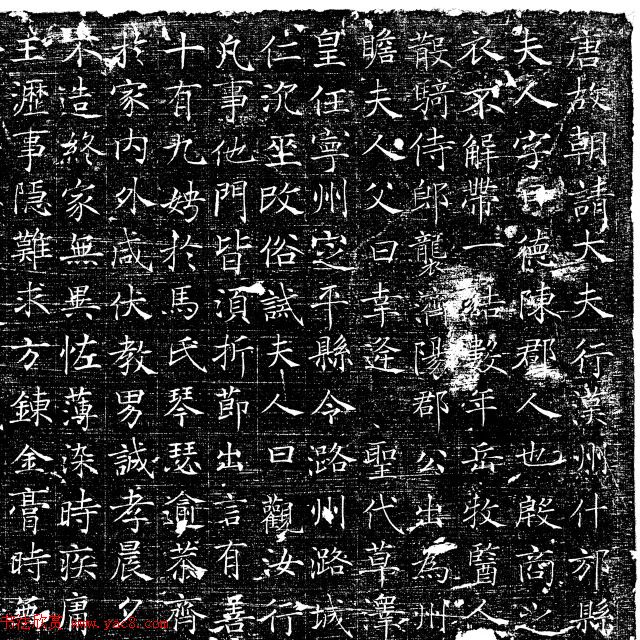 唐故朝請大夫行漢州什邡縣
夫人字曰德陳郡人也殷商之
衣不解帶一結數年岳牧醫人
散騎侍郎襲濟陽郡公出為州
瞻夫人父曰幸逢 聖代草澤
皇任寧州定平縣令潞州潞城
仁沉坐改俗試夫人曰觀汝行
凡事他門皆須折節出言有善
十有九娉於馬氏琴瑟逾恭齊
於家內外咸伏教男誠孝晨夕
不造終家無異恡薄染時疾庸
王瀝事隱難求方鍊金膏時無
www.yac8.com